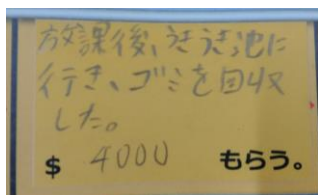 放課後、うきうき池に
行き、ゴミを回収
した。
$ 4000 もらう。